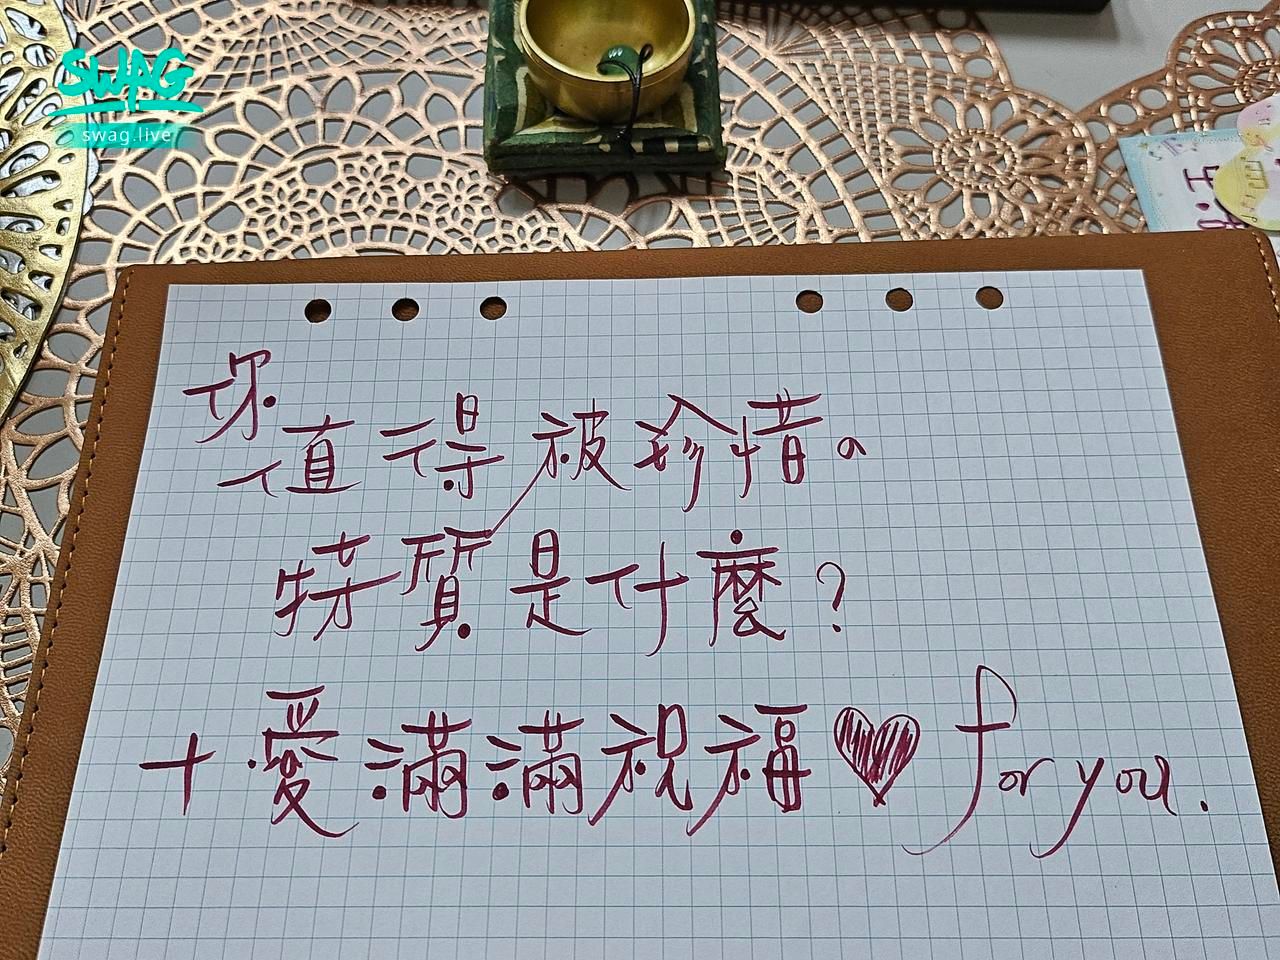 SWAG
swag.live
你
值得被珍惜。
特質是什麼?
+愛滿滿祝福♥ for you.